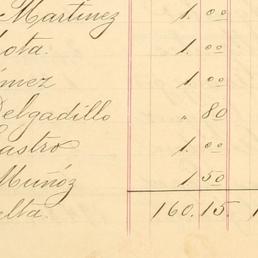 Martinez 1. 00
lota. 1. 00
ómez 1. 00
Delgadillo " 80
Castro 1. 00
Muñóz 1 50
elta. 160. 15.